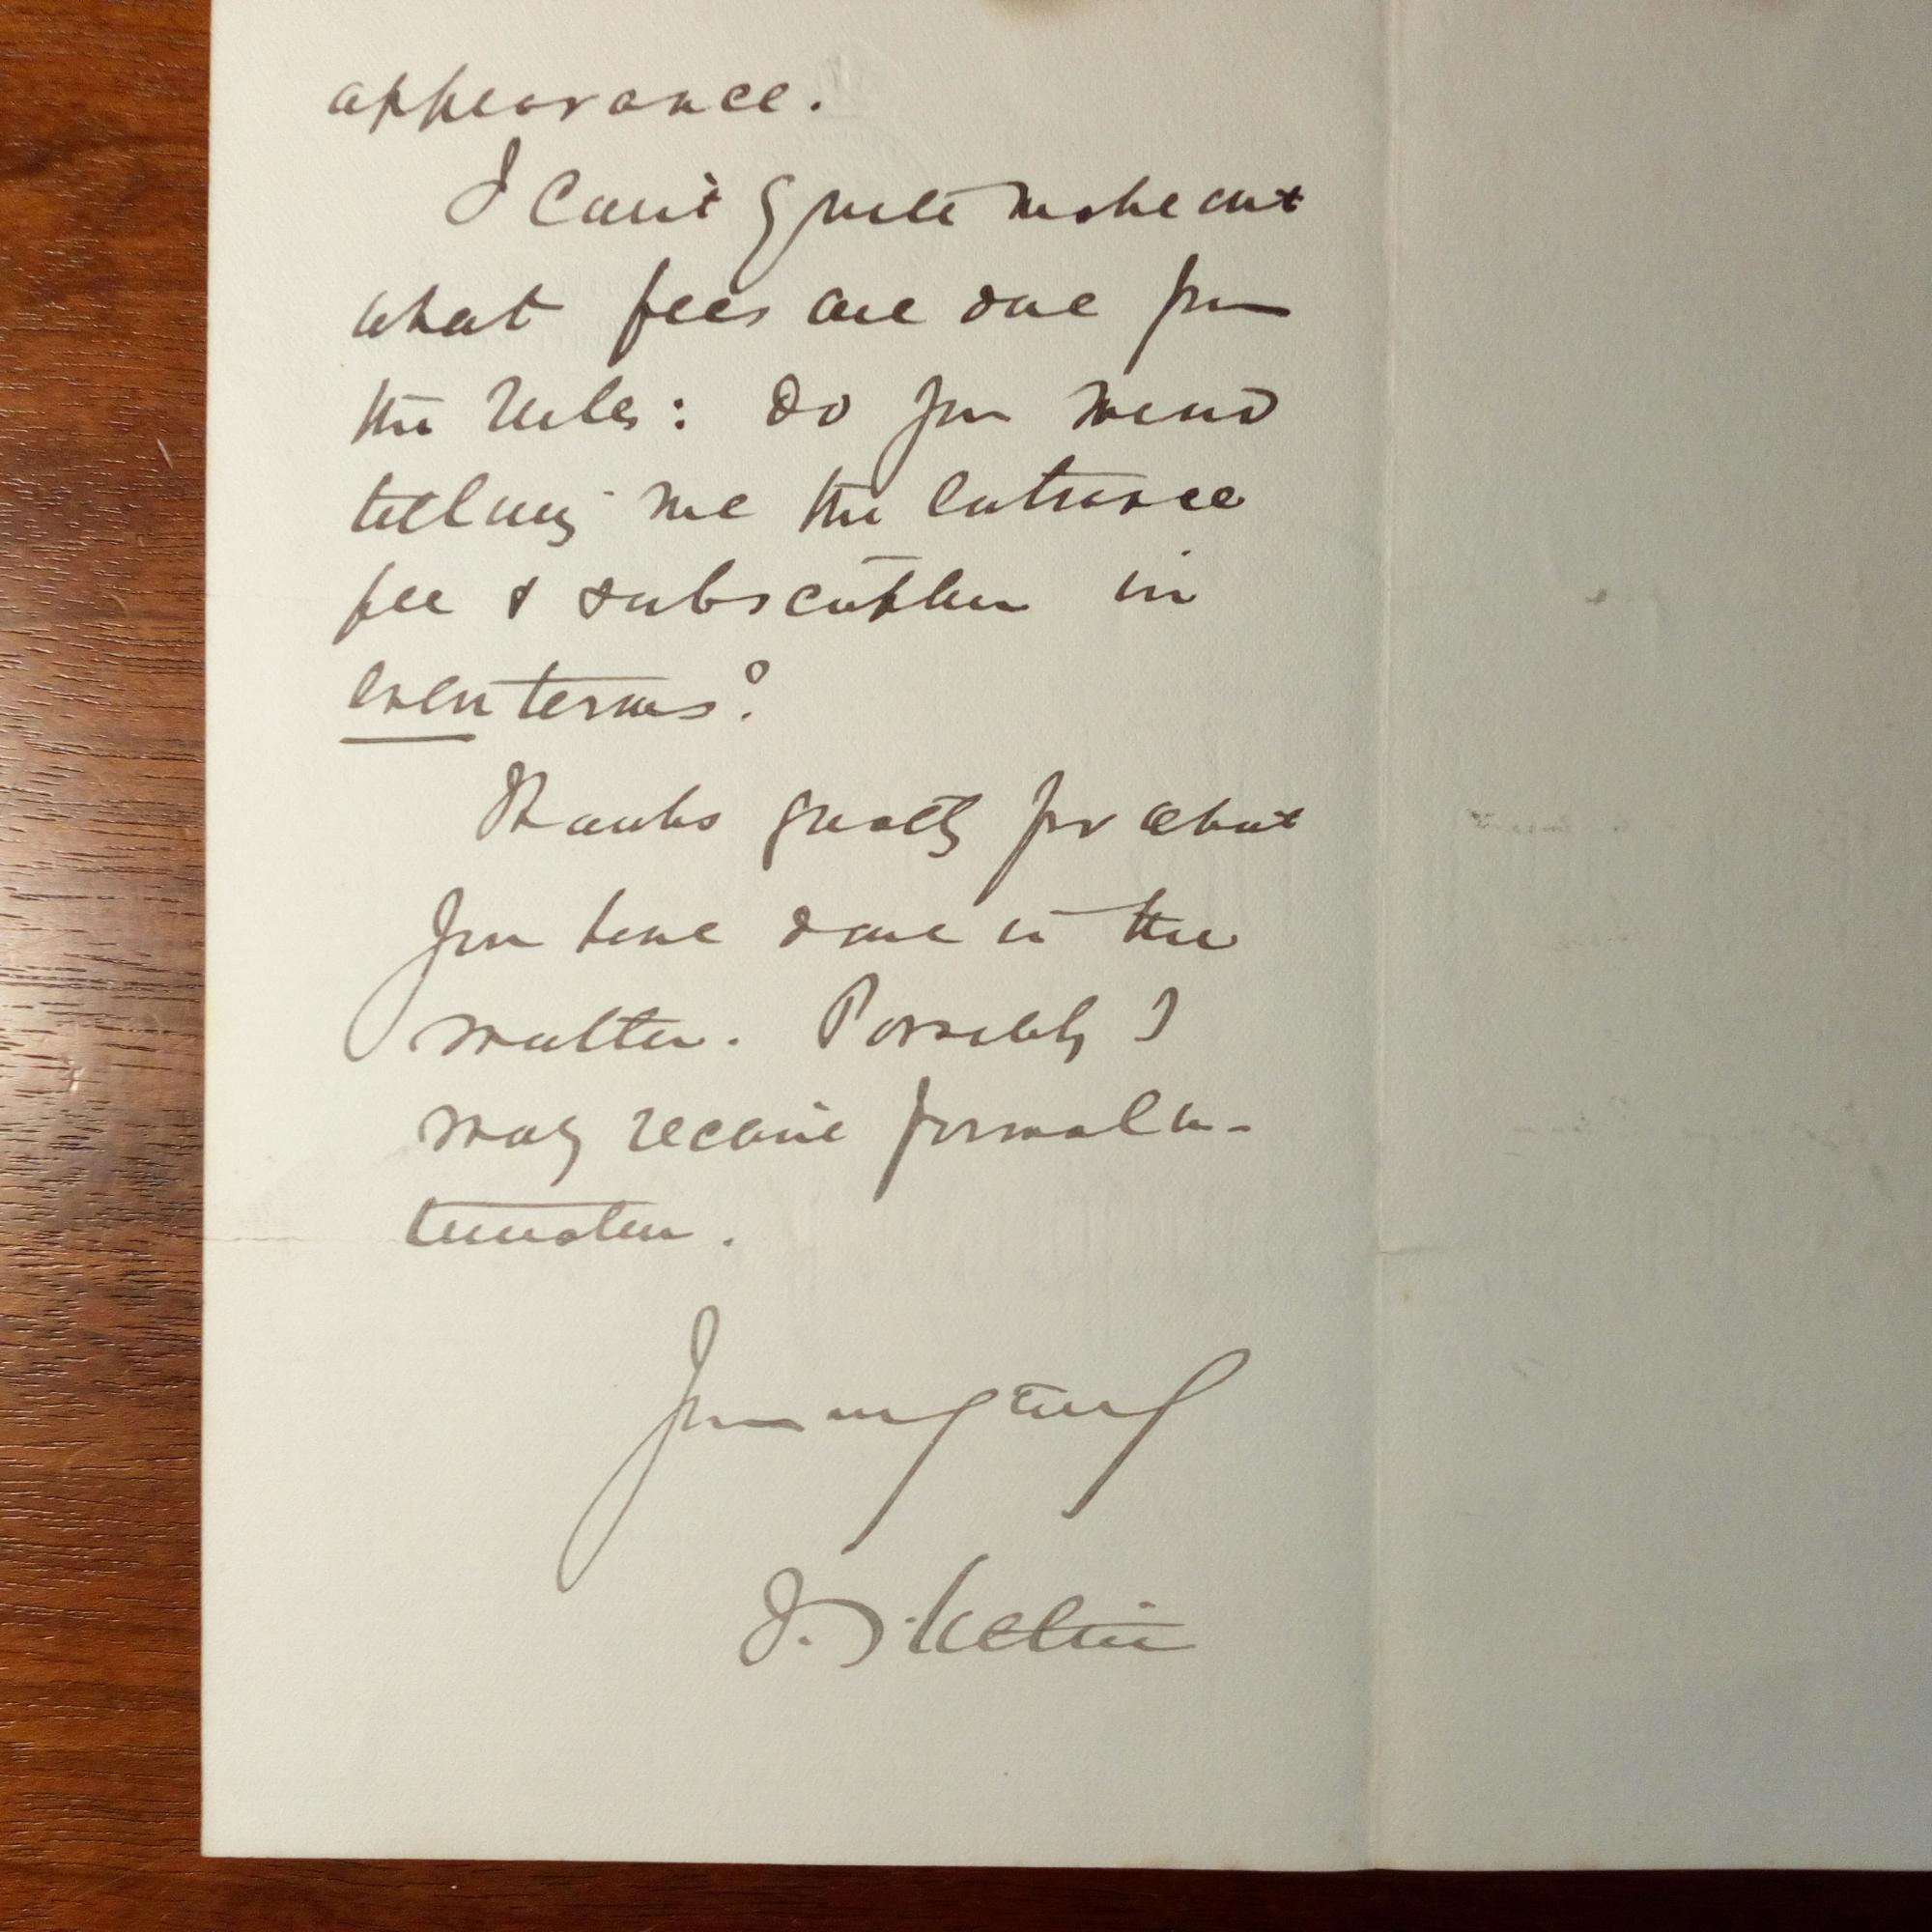 appearance.
I can't quite make out
what fees are due from
the rules: do you mind
telling me the entrance
fee & subscription in
even terms?
Thanks greatly for what
you have done in the
matter. Possibly I
may receive formal in-
timation.
Yours
J.